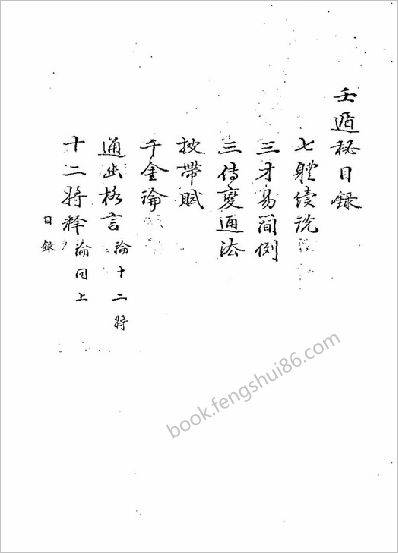 壬遁秘目録
七體續說
三才易簡例
三傳變通法
按帶賦
千金論
通玄格言 論十二將
十二將釋 論同上
目錄
book.fengshui86.com